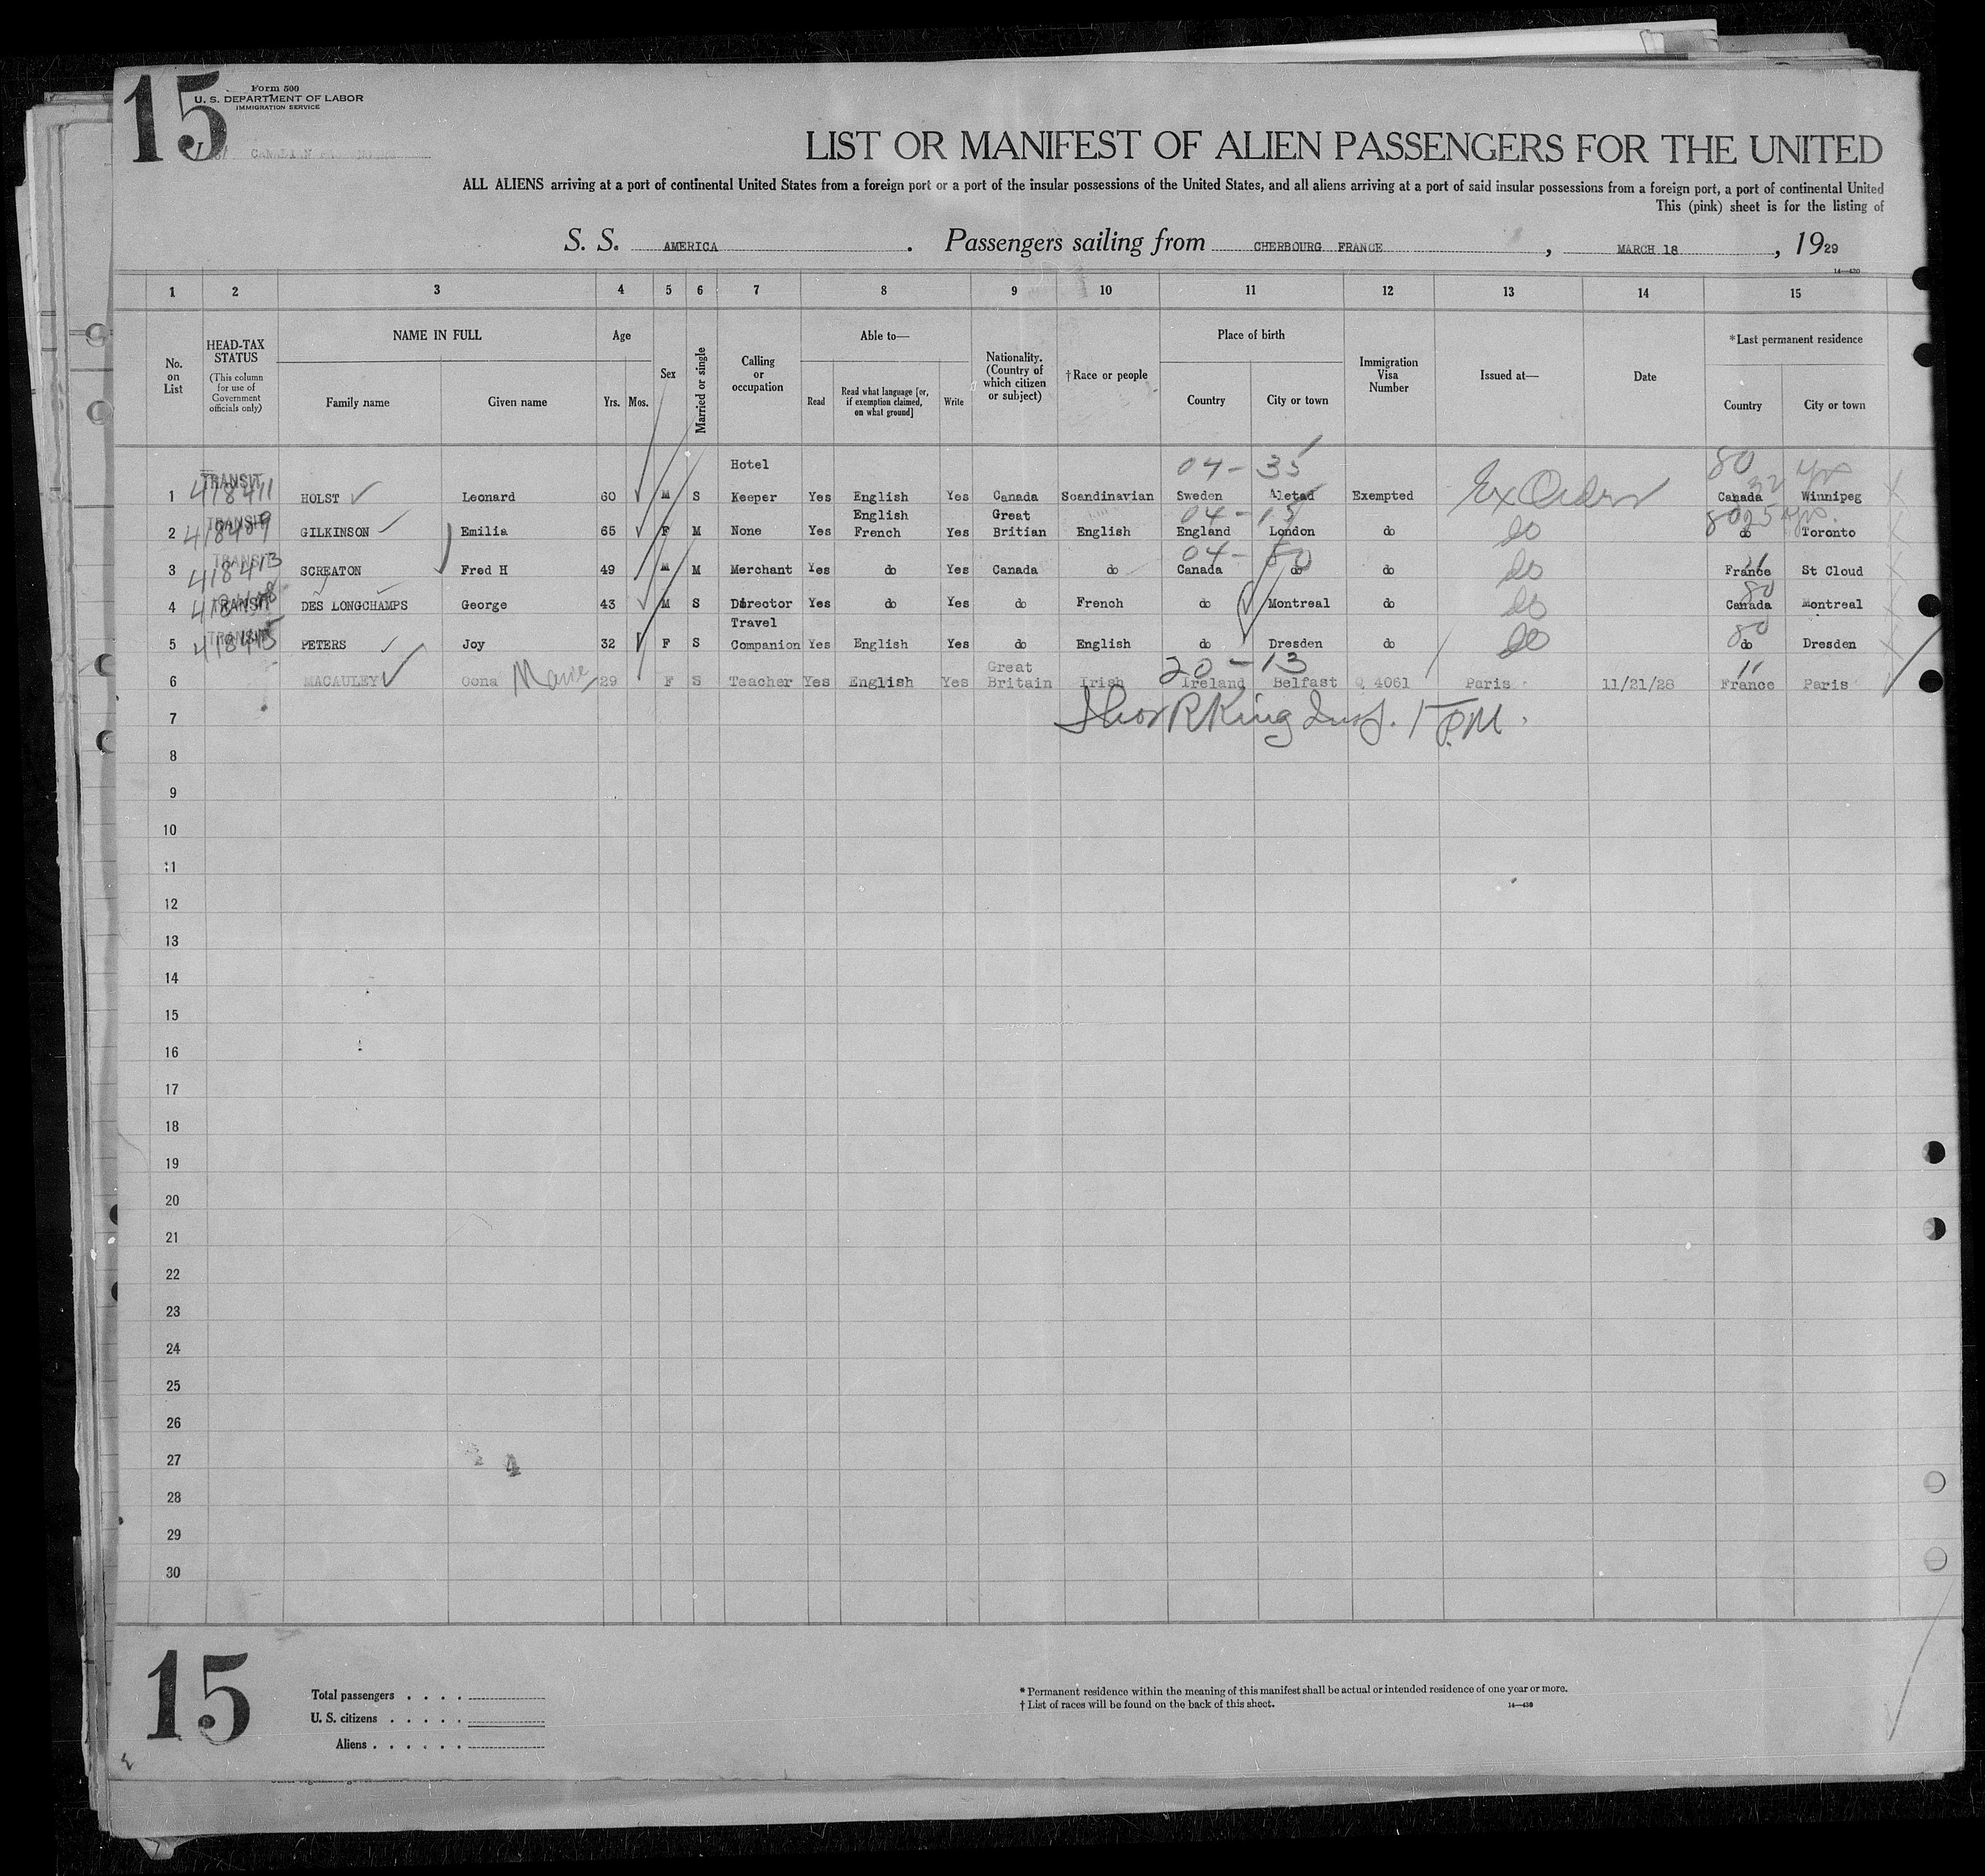 15
Form 500
U. S. DEPARTMENT OF LABOR
IMMIGRATION SERVICE
LIST OR MANIFEST OF ALIEN PASSENGERS FOR THE UNITED
ALL ALIENS arriving at a port of continental United States from a foreign port or a port of the insular possessions of the United States, and all aliens arriving at a port of said insular possessions from a foreign port, a port of continental United
This (pink) sheet is for the listing of
S. S. AMERICA . Passengers sailing from CHERBOURG FRANCE , MARCH 18 , 1929
14—430
1 2 3 4 5 6 7 8 9 10 11 12 13 14 15
No. on List
HEAD-TAX STATUS
(This column for use of Government officials only)
NAME IN FULL
Family name Given name
Age
Yrs. Mos.
Sex
Married or single
Calling or occupation
Able to—
Read
Read what language [or, if exemption claimed, on what ground]
Write
Nationality. (Country of which citizen or subject)
†Race or people
Place of birth
Country City or town
Immigration Visa Number
Issued at—
Date
*Last permanent residence
Country City or town
04 - 35 80 32 yrs
1 TRANSIT 418411 HOLST Leonard 60 M S Hotel Keeper Yes English Yes Canada Scandinavian Sweden Exempted Ex Order Canada Winnipeg
04 - 13 80 25 yrs
2 TRANSIT 418409 GILKINSON Emilia 65 F M None Yes English French Yes Great Britian English England London do do do Toronto
04 - 80
3 TRANSIT 418413 SCREATON Fred H 49 M M Merchant Yes do Yes Canada do Canada do do do France St Cloud
80
4 TRANSIT DES LONGCHAMPS George 43 M S Director Yes do Yes do French do Montreal do do Canada Montreal
80
5 TRANSIT 418415 PETERS Joy 32 F S Travel Companion Yes English Yes do English do Dresden do do do Dresden
20 - 13 11
6 MACAULEY Oona Marie 29 F S Teacher Yes English Yes Great Britain Irish Ireland Belfast Q 4061 Paris 11/21/28 France Paris
7 Thos R King Insp. 1 P.M.
8
9
10
11
12
13
14
15
16
17
18
19
20
21
22
23
24
25
26
27
28
29
30
4
15
Total passengers
U. S. citizens
Aliens
* Permanent residence within the meaning of this manifest shall be actual or intended residence of one year or more.
† List of races will be found on the back of this sheet.
14—430